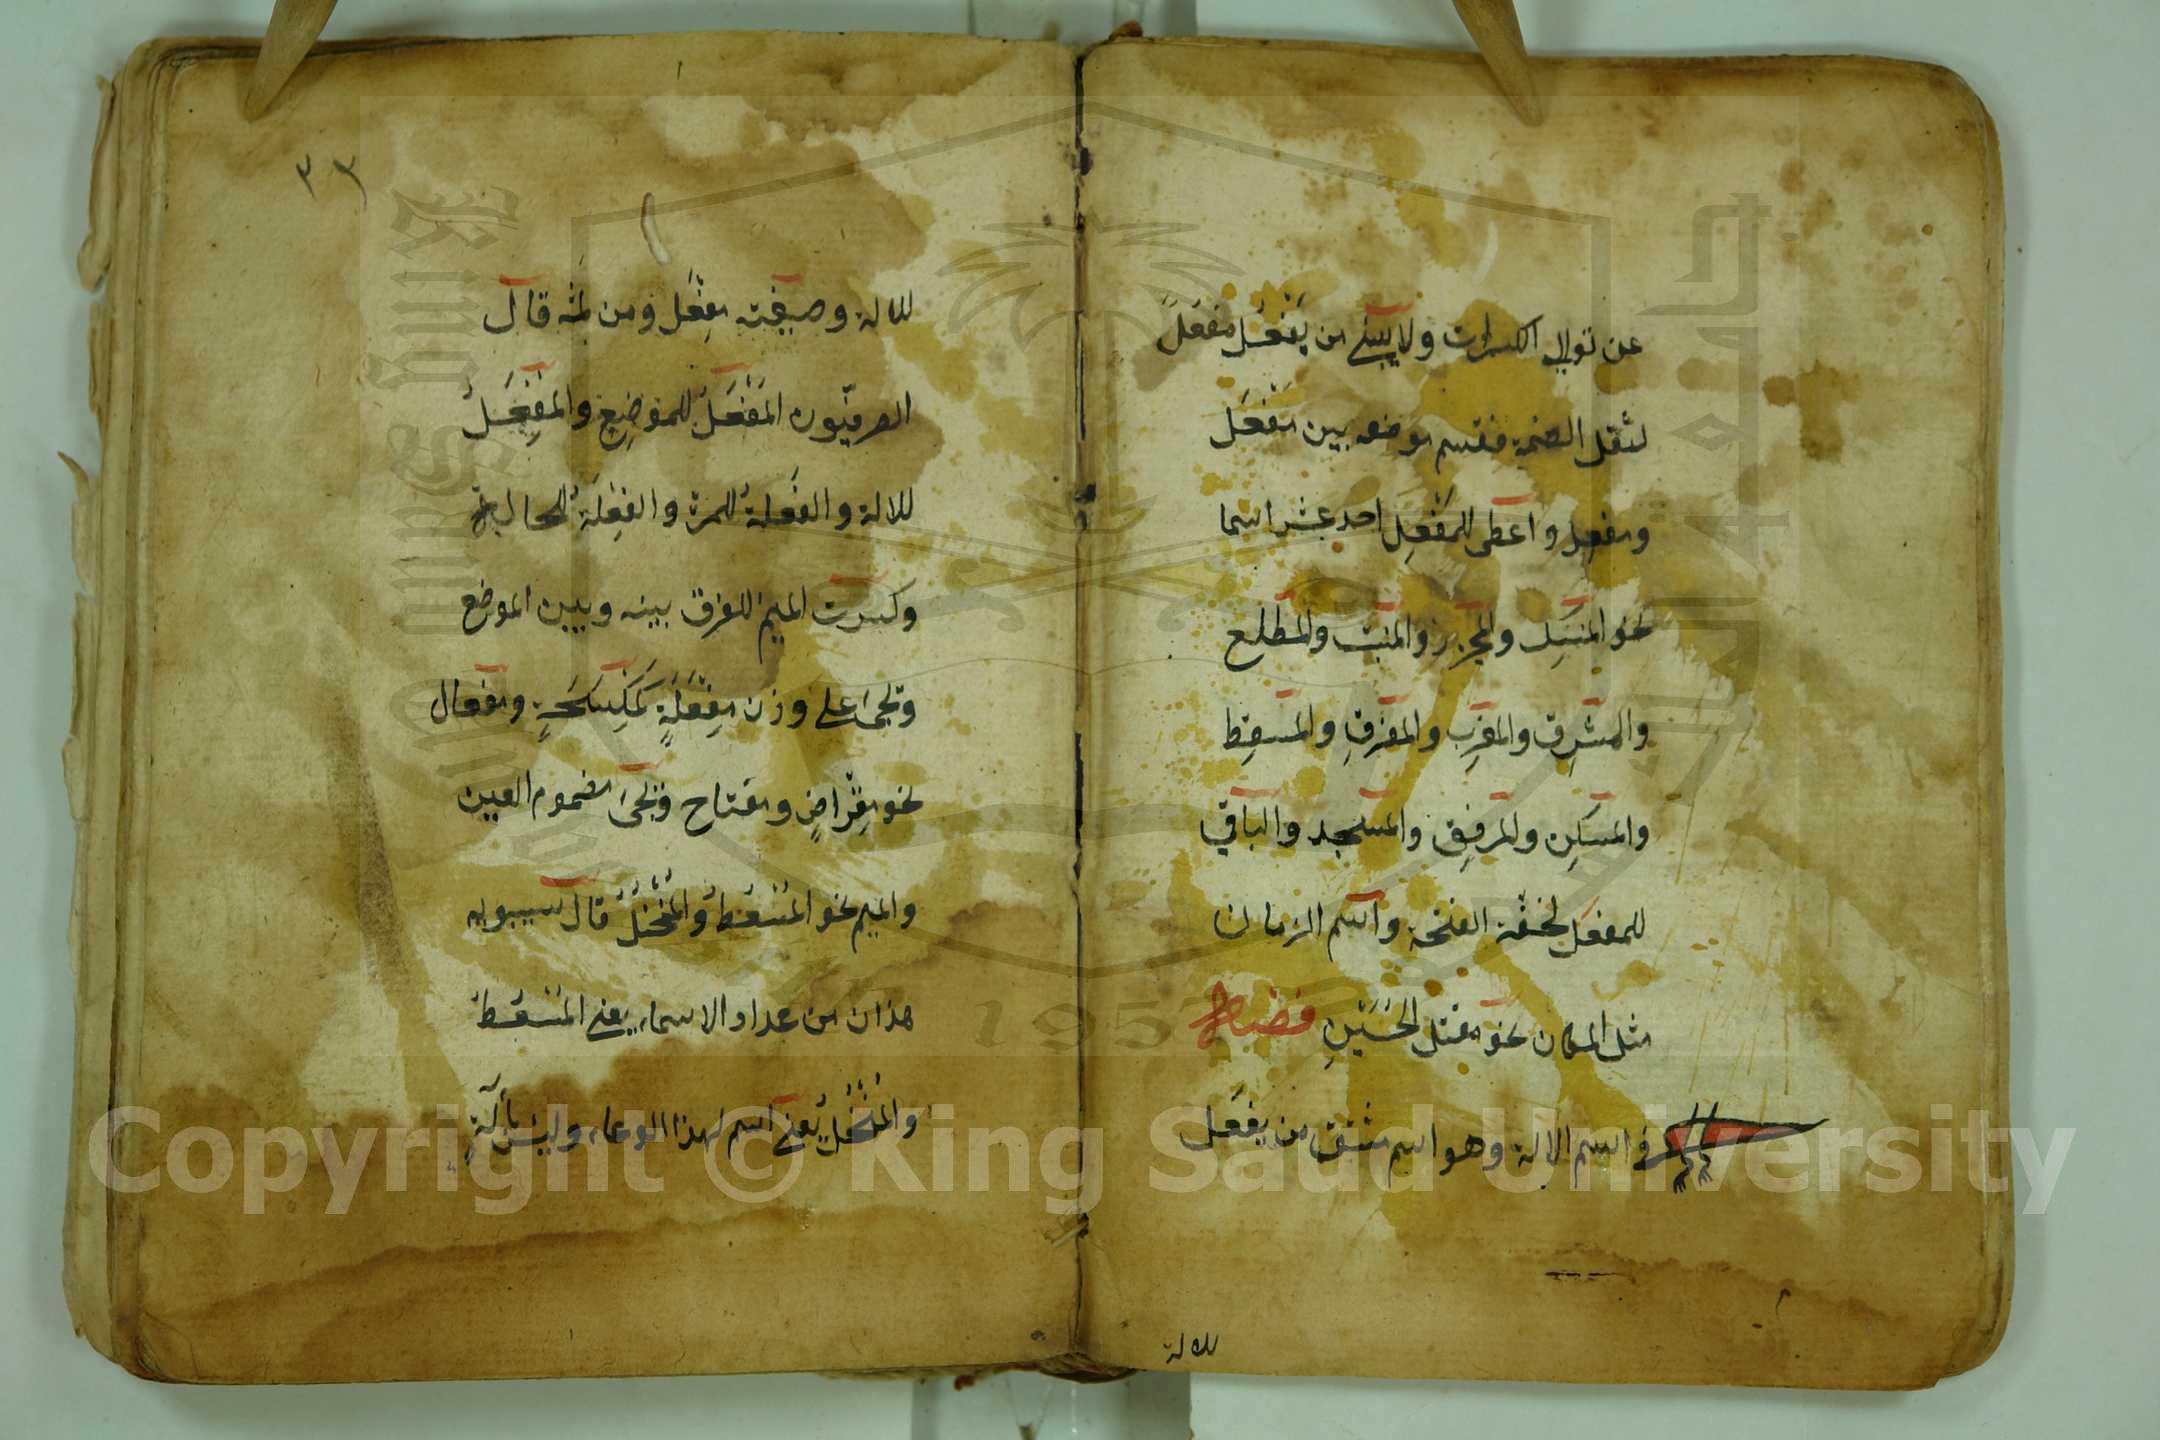 عن توالى الكسرات ولا يبنى من يَفْعُل مفعُلَ
لثقل الضمة فقسم موضعه بين مَفْعَل
ومفعِل واعطى للمَفْعِل احد عشر اسما
نحو المنسِك والمجزِر والمنبت والمطلع
والمشرِق والمغرِب والمفرِق والمسقِط
والمسكِن والمرفِق والمسجد والباقى
للمفعَل لخفة الفتحة واسم الزمان
مثل المكان نحو مقتل الحُسَيْنِ فصل
فى اسم الالة وهو اسم مشتق من يفعَل
للالة
٣٣
للالة وصيغته مِفْعَل ومن ثمَّه قال
الصرفيّون المَفْعَلُ للموضِع والمِفْعَلُ
للالة والفَعلةُ للمرة والفِعْلَةُ للحالة
وكسرت الميم للفرق بينه وبين الموضع
وتجىء على وزن مِفْعَلَةٍ كَمِكْسَحَةٍ ومفعال
نحو مِقْراضٍ ومفتاح وتجىء مضموم العين
والميم نحو المُسْعُطُ والمُنْخُلُ قال سيبويه
هذان من عداد الاسماء يعنى المُسْعُطُ
والمُنْخُلُ يعنى اسم لهذا الوعاء وليس بآلةٍ
Copyright © King Saud University
King Saud University
1957